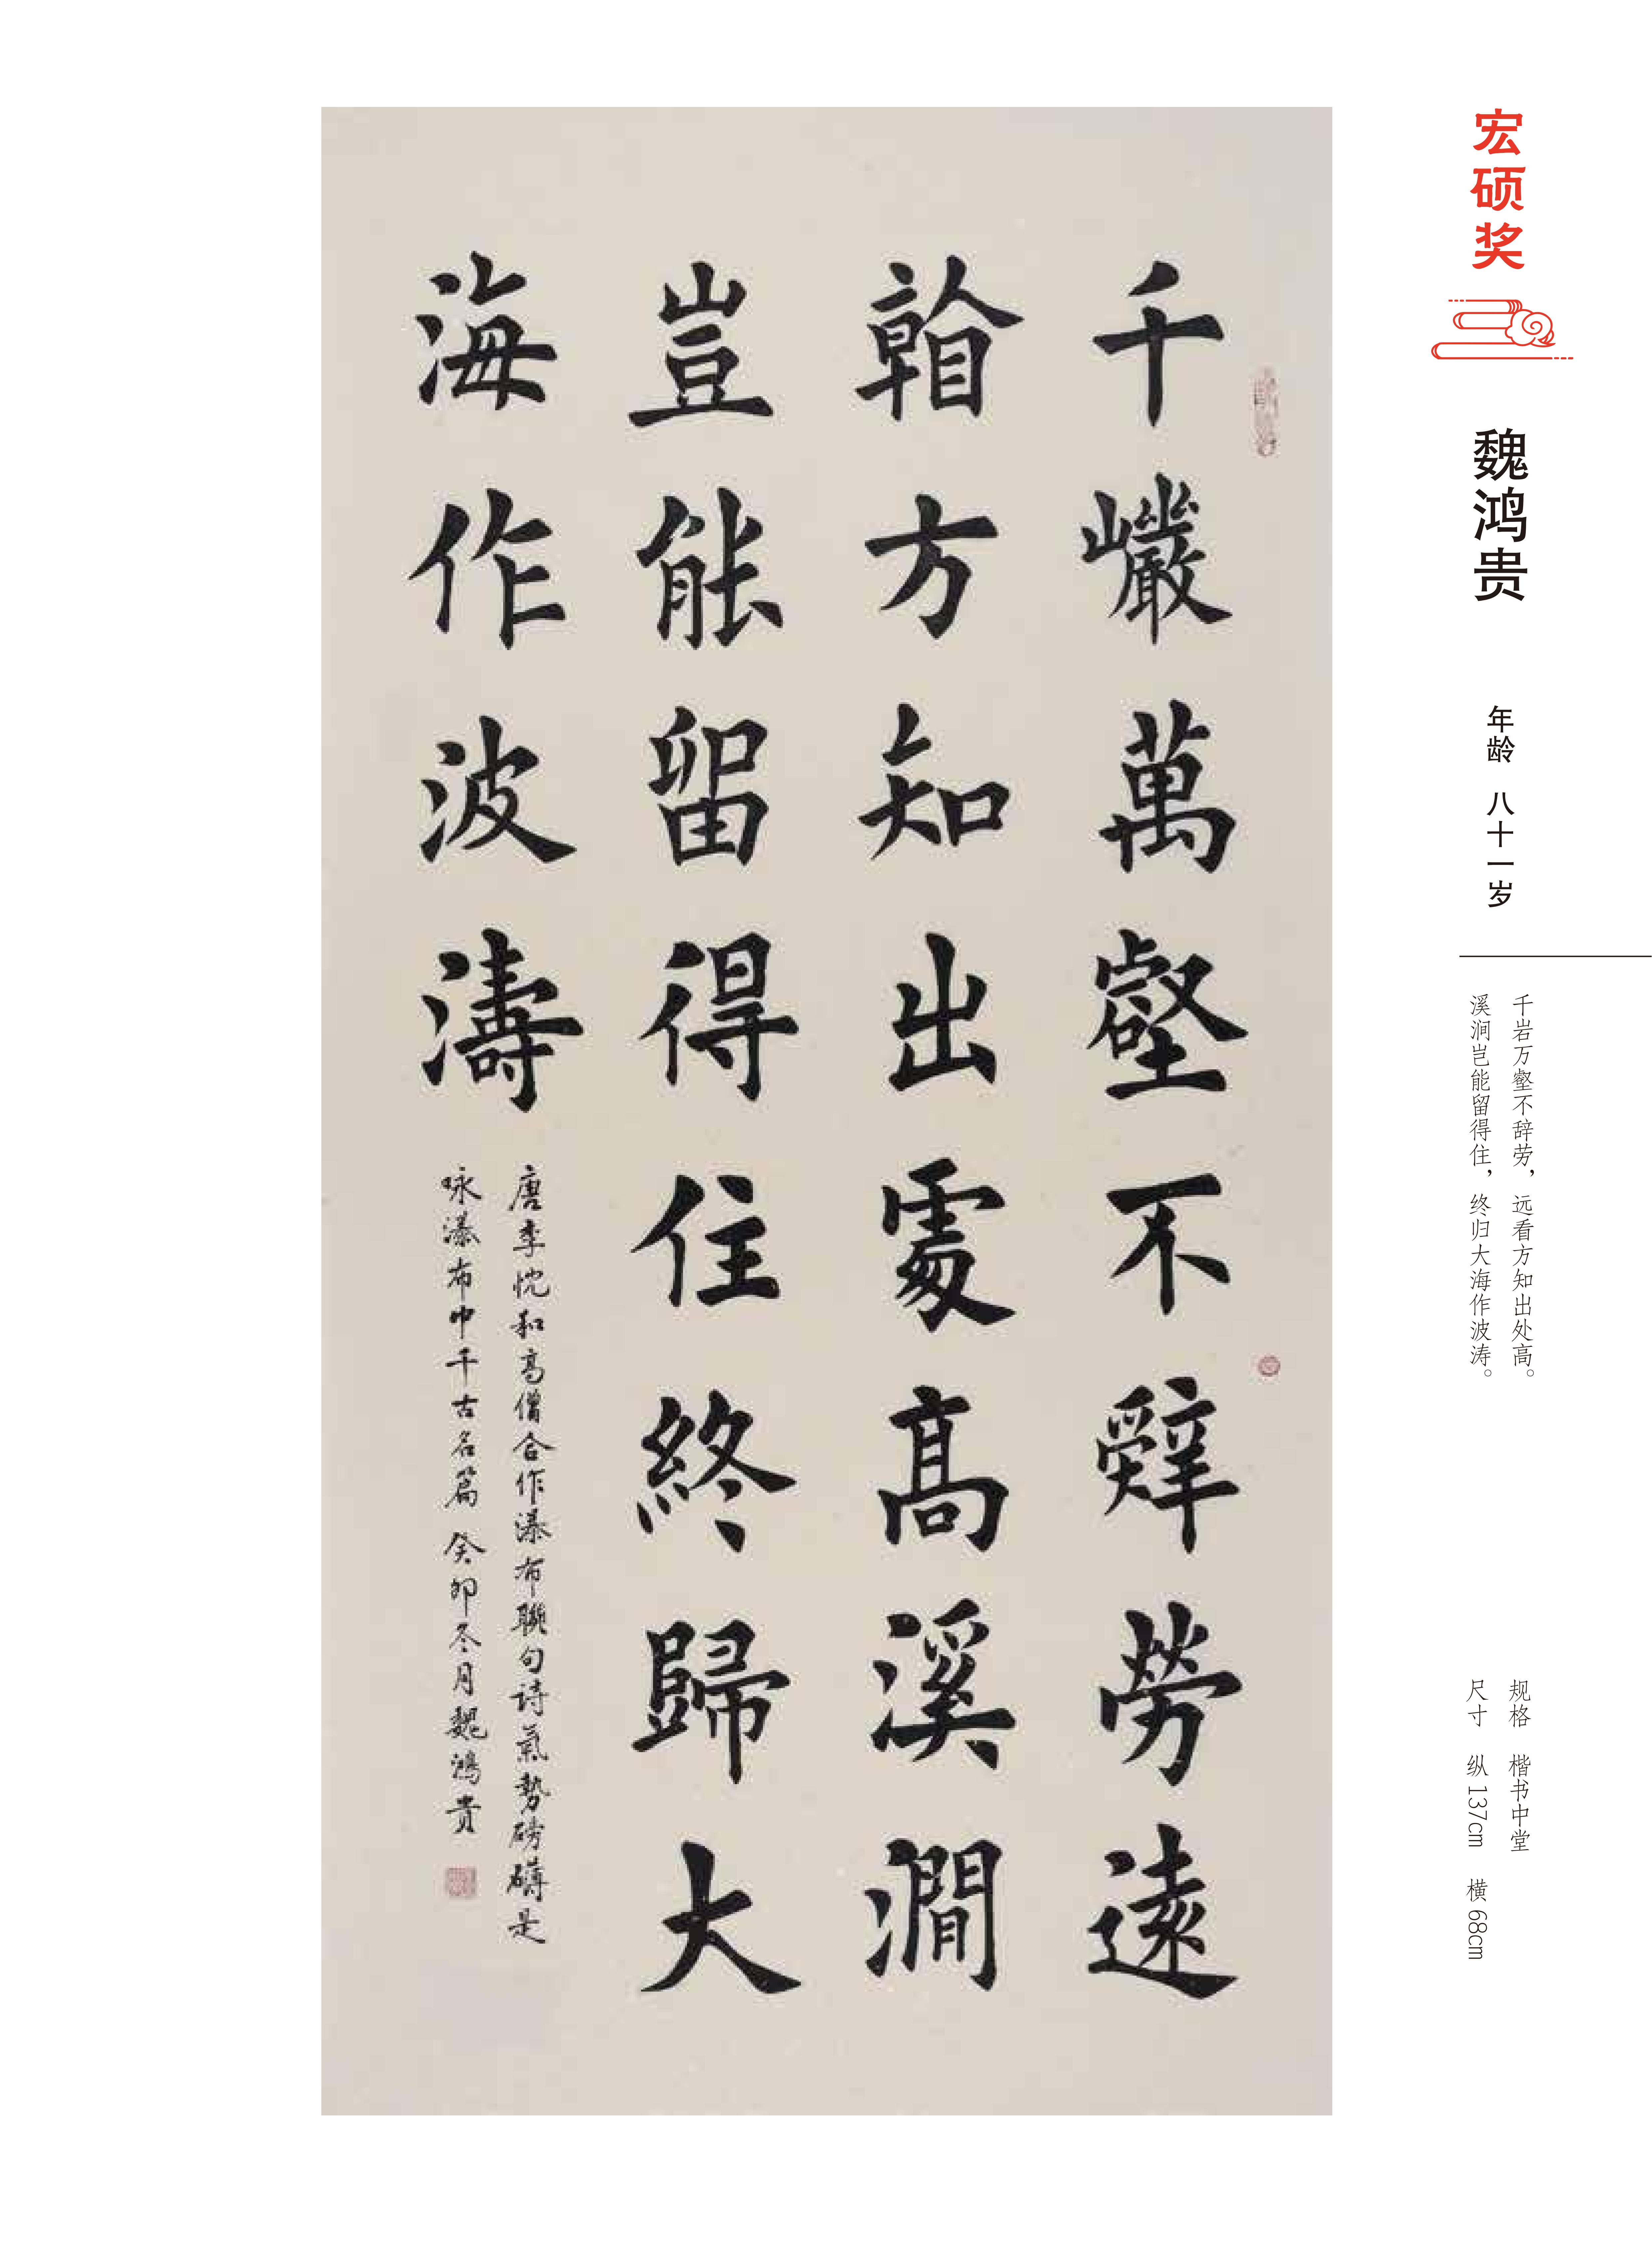 宏硕奖
魏鸿贵
年龄 八十一岁
千岩万壑不辞劳，远看方知出处高。
溪涧岂能留得住，终归大海作波涛。
规格 楷书中堂
尺寸 纵137cm 横68cm
千巗萬壑不辤勞遠
翰方知出處高溪澗
豈能留得住終歸大
海作波濤
唐李忱和高僧合作瀑布聯句诗氣勢磅礴是
咏瀑布中千古名篇 癸卯冬月魏鴻貴